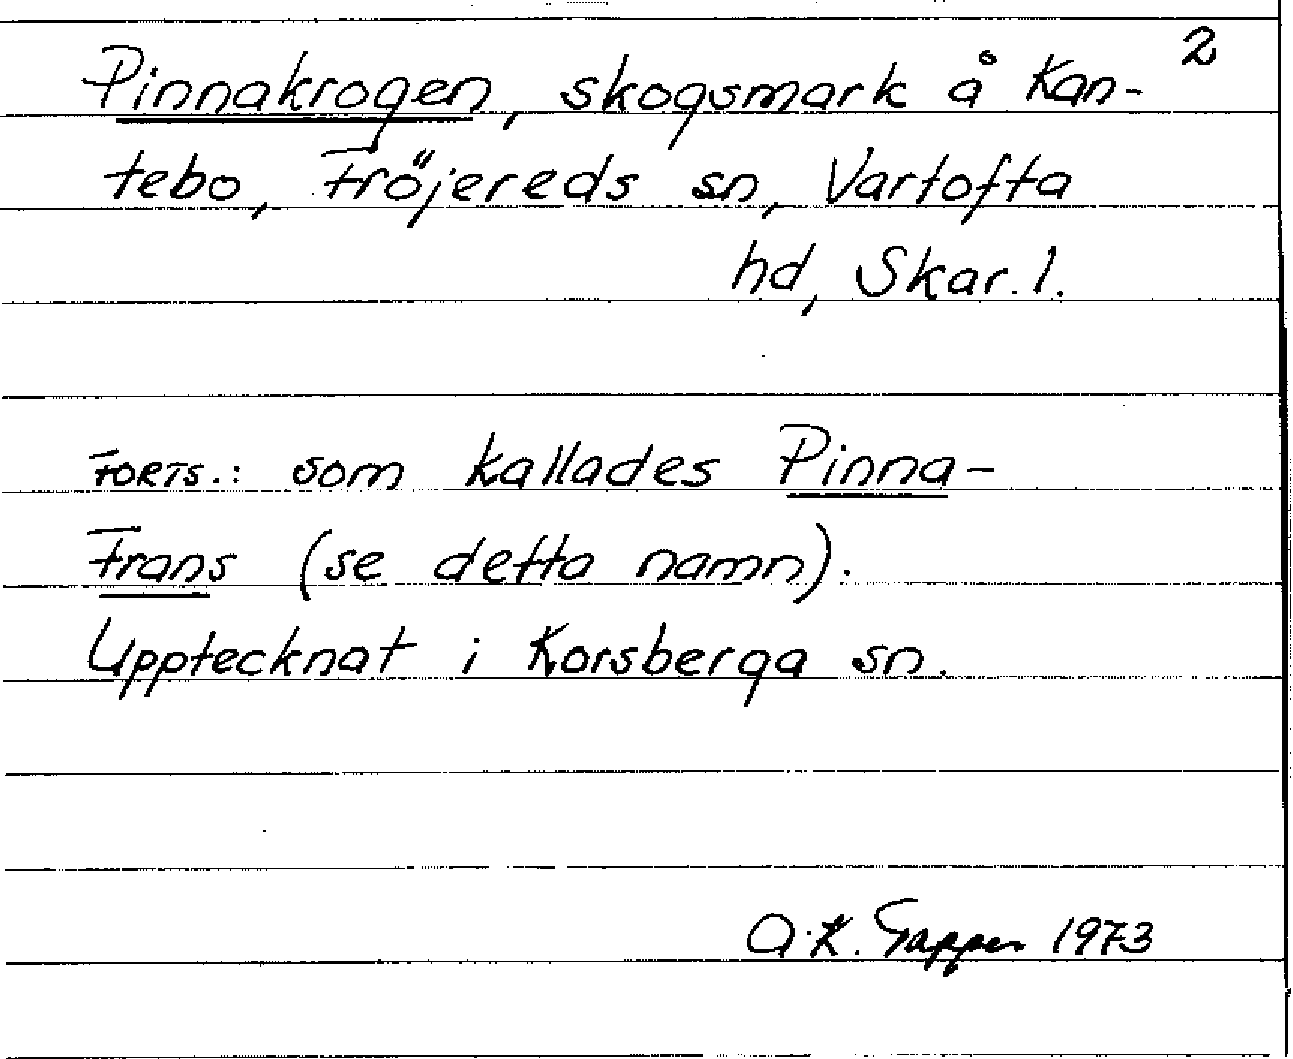 2
Pinnakrogen, skogsmark å Kan-
tebo, Fröjereds sn, Vartofta
hd, Skar. l.
FORTS.: som kallades Pinna-
Frans (se detta namn).
Upptecknat i Korsberga sn.
A.K. 1973